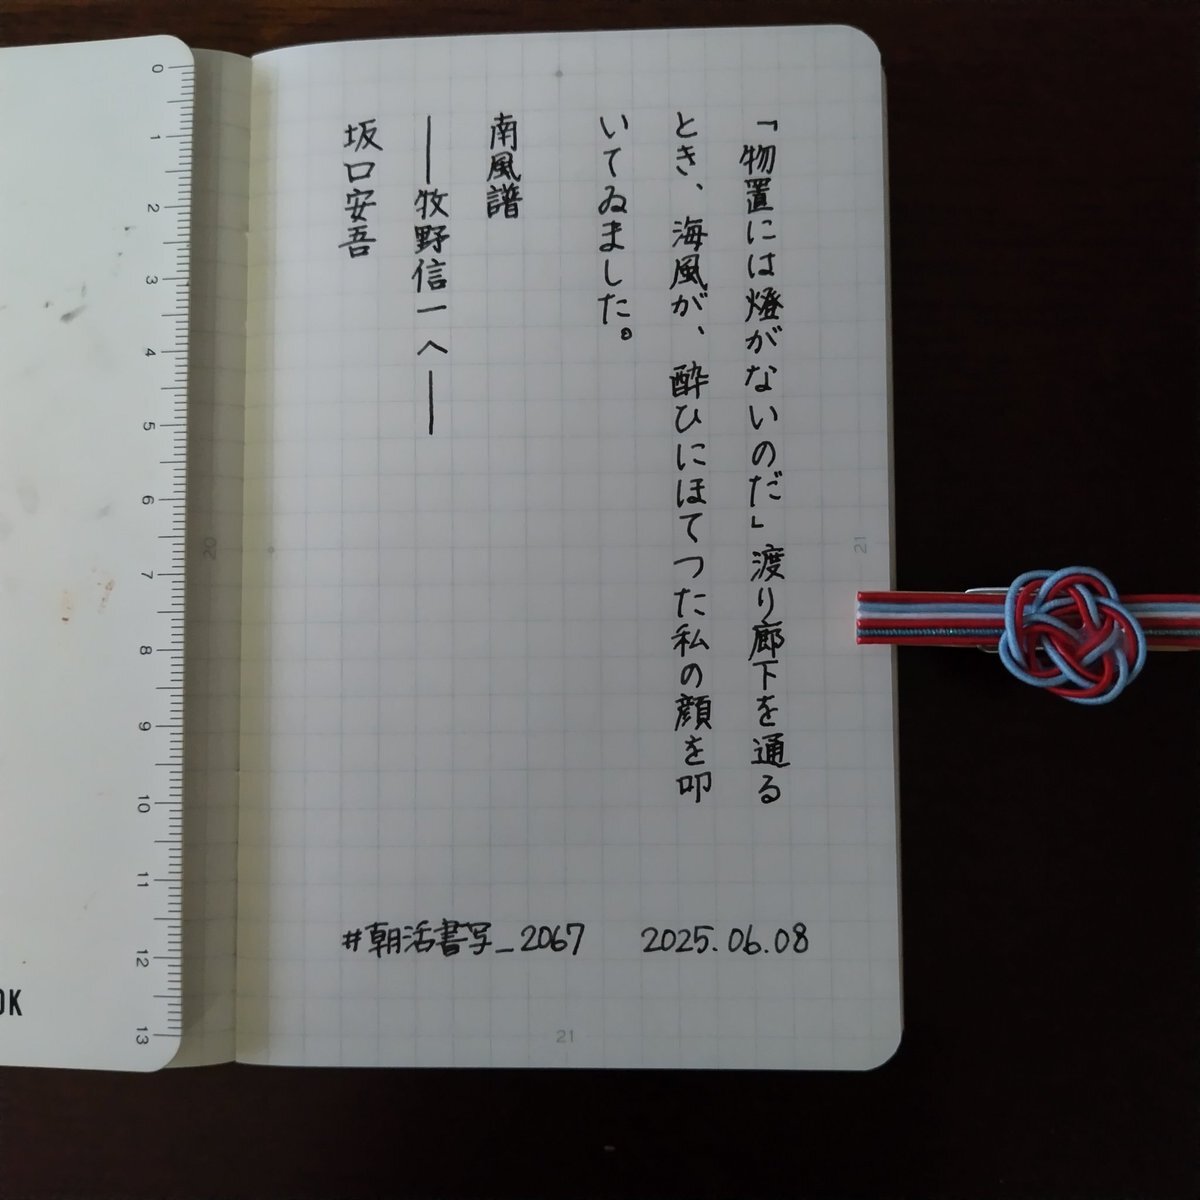 「物置には燈がないのだ」渡り廊下を通る
とき、海風が、酔ひにほてつた私の顔を叩
いてゐました。
南風譜
――牧野信一へ――
坂口安吾
#朝活書写_2067 2025.06.08
21
21
20
0
1
2
3
4
5
6
7
8
9
10
11
12
13
OK